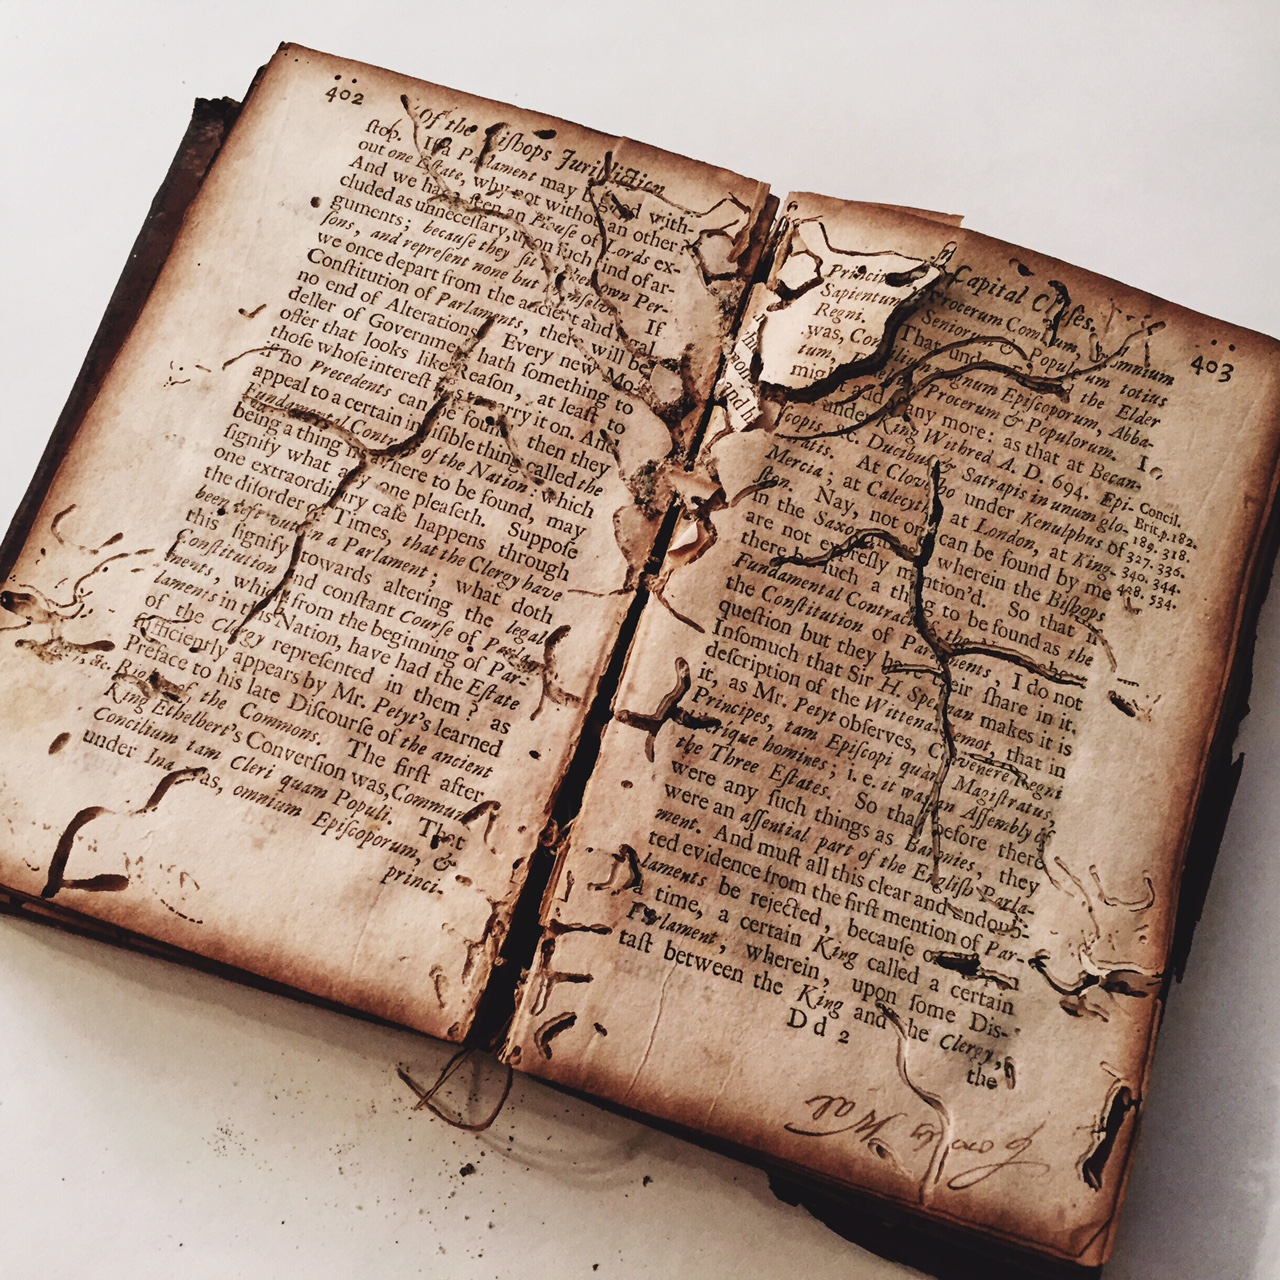 402
Of the Biſhops Juriſdiction
ſtop. If a Parlament may be good with-
out one Eſtate, why not without an other?
And we have ſeen an Houſe of Lords ex-
cluded as unneceſſary, upon ſuch kind of ar-
guments; becauſe they ſit
ſons, and repreſent none but themſelves. If
we once depart from the ancient and legal
Conſtitution of Parlaments, there will be
no end of Alterations. Every new Mo-
deller of Government hath ſomething to
offer that looks like Reaſon, at leaſt to
thoſe whoſe intereſt it is to carry it on. And
if no Precedents can be found, then they
appeal to a certain inviſible thing called the
Fundamental Contract of the Nation: which
being a thing no where to be found, may
ſignify what any one pleaſeth. Suppoſe
one extraordinary caſe happens through
the diſorder of Times, that the Clergy have
been left out in a Parlament; what doth
this ſignify towards altering the legal
Conſtitution and conſtant Courſe of Parla-
ments, which from the beginning of Par-
laments in this Nation, have had the Eſtate
of the Clergy repreſented in them? as
ſufficiently appears by Mr. Petyt's learned
Preface to his late Diſcourſe of the ancient
Rights of the Commons. The firſt after
King Ethelbert's Converſion was, Commune
Concilium tam Cleri quam Populi. That
under Ina was, omnium Epiſcoporum, &
princi-
in Capital Caſes. 403
Principum, Procerum Comitum, & omnium
Sapientum, Seniorum & Populorum totius
Regni. That under the Elder
was, Concilium magnum Epiſcoporum, Abba-
tum, Procerum & Populorum. I
might add many more: as that at Becan-
under King Withred A. D. 694. Epi-
ſcopis, &c. Ducibus & Satrapis in unum glo-
meratis. At Cloveſho under Kenulphus of
Mercia; at Calcyth, at London, at King-
ſton. Nay, not one can be found by me
in the Saxon wherein the Biſhops
are not expreſly mention'd. So that if
there be ſuch a thing to be found as the
Fundamental Contract
the Conſtitution of Parlaments, I do not
queſtion but they had their ſhare in it.
Inſomuch that Sir H. Spelman makes it is
deſcription of the Wittena Gemot, that in
it, as Mr. Petyt obſerves, Convenere Regni
Principes, tam Epiſcopi quam Magiſtratus,
liberique homines; i. e. it was an Aſſembly of
the Three Eſtates. So that before there
were any ſuch things as Baronies, they
were an aſſential part of the Engliſh Parla-
ment. And muſt all this clear and undoub-
ted evidence from the firſt mention of Par-
laments be rejected, becauſe once upon
a time, a certain King called a certain
Parlament, wherein, upon ſome Dis-
taſt between the King and the Clergy,
Dd 2
the
Concil.
Brit. p. 182.
189. 318.
327. 336.
340. 344.
428. 534.